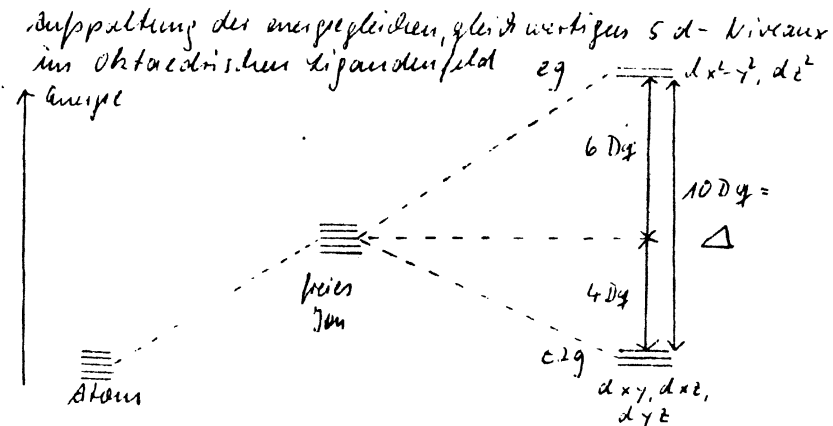 Aufspaltung der energiegleichen, gleichwertigen 5 d-Niveaux
im oktaedrischen Ligandenfeld
eg
dx²-y², dz²
Energie
6 Dq
10 Dq =
Δ
freies
Ion
4 Dq
t2g
Atom
dxy, dxz,
dyz